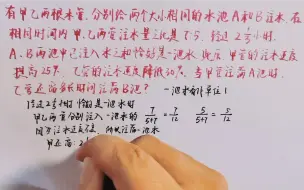 有甲乙两根水管,分别给两个大小相同的水池A和B注水,在
相同时间内,甲乙两管注水量之比是7:5.经过2⅓小时,
A、B两池中已注入水之和恰好是一池水.此后,甲管的注水速度
提高25%,乙管的注水速度降低30%.当甲管注满A池时,
乙管还需多长时间注满B池?
一池水为单位1
经过2⅓小时 恰好是一池水时
甲乙两管分别注入一池水的 7/5+7=7/12 5/5+7=5/12
甲还需: